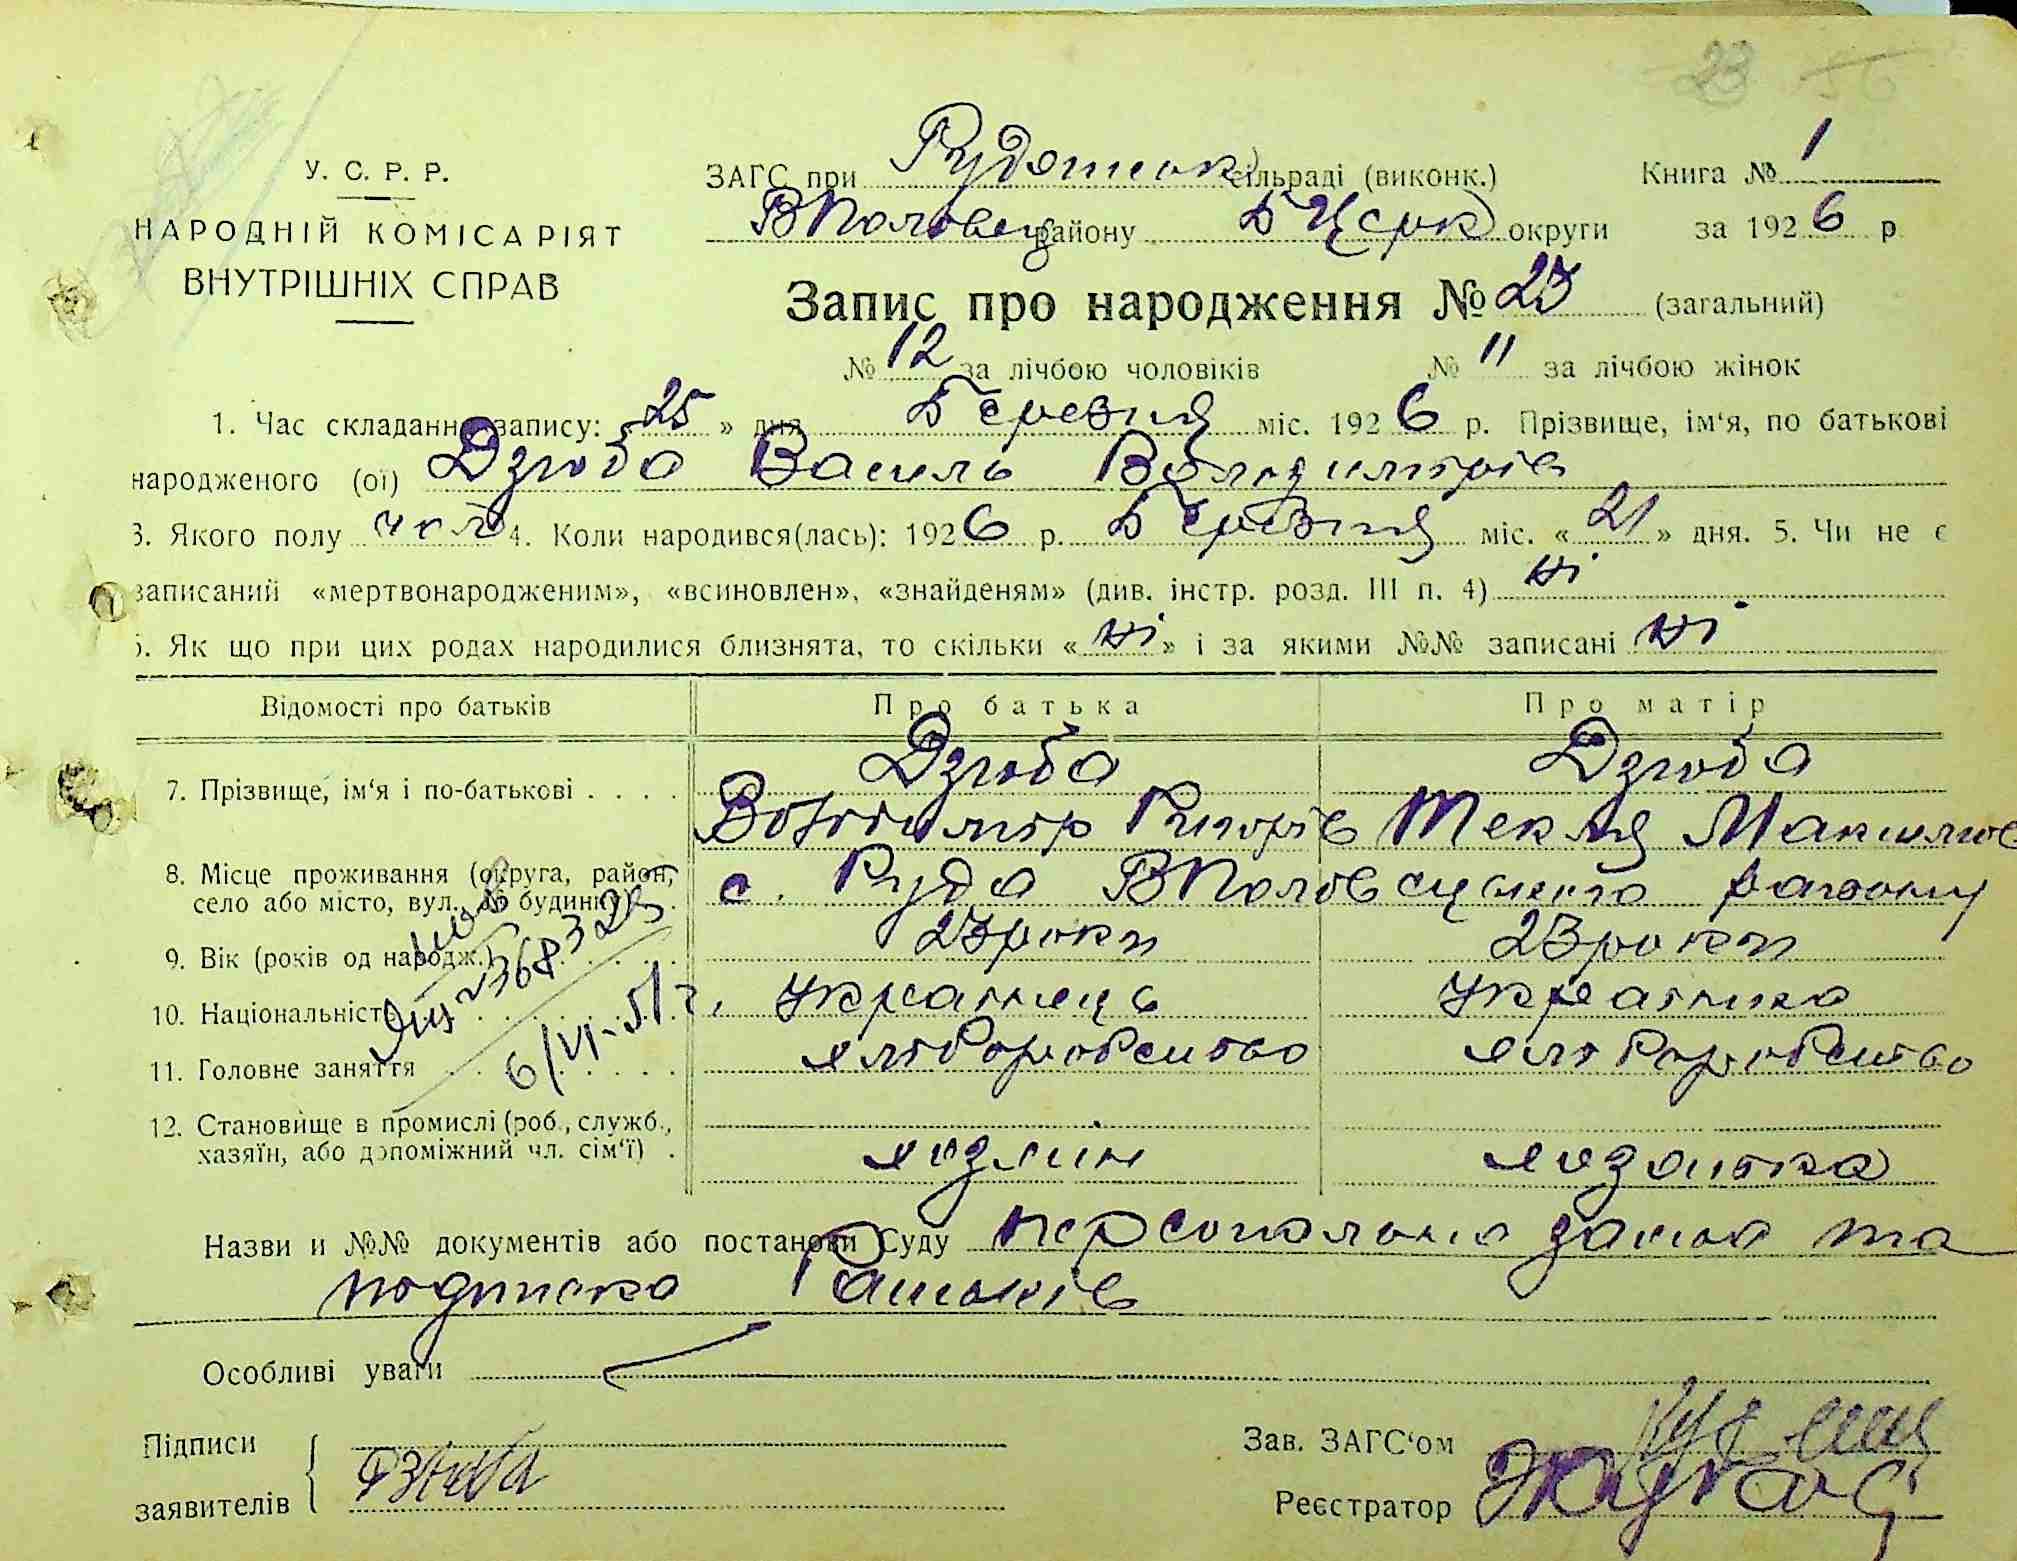 23 56
У. С. Р. Р.
НАРОДНІЙ КОМІСАРІЯТ
ВНУТРІШНІХ СПРАВ
ЗАГС при Рудянськ сільраді (виконк.) Книга № 1
ВПоловец району БЦерк округи за 1926 р
Запис про народження № 23 (загальний)
№ 12 за лічбою чоловіків № 11 за лічбою жінок
1. Час складання запису: « 25 » дня Березня міс. 1926 р. Прізвище, ім'я, по батькові
народженого (ої) Дзюба Василь Володимирів
3. Якого полу чол 4. Коли народився(лась): 1926 р. Березня міс. « 21 » дня. 5. Чи не є
записаний «мертвонародженим», «всиновлен», «знайденям» (див. інстр. розд. III п. 4) ні
6. Як що при цих родах народилися близнята, то скільки « ні » і за якими №№ записані ні
Відомості про батьків Про батька Про матір
7. Прізвище, ім'я і по-батькові Дзюба Дзюба
Володимир Григорів Текля Максимов
8. Місце проживання (округа, район,
село або місто, вул., № будинку) с. Руда ВПоловецького району
9. Вік (років од народж.) 23 роки 23 роки
10. Національність Українець Українка
11. Головне заняття хліборобство хліборобство
12. Становище в промислі (роб., служб.,
хазяїн, або допоміжний чл. сім'ї) хозяїн хозяйка
6/VI-51 г.
Назви и №№ документів або постанови Суду персональна заява та
подписка Батьків
Особливі уваги
Підписи
заявителів Дзюба
Зав. ЗАГС'ом
Реєстратор